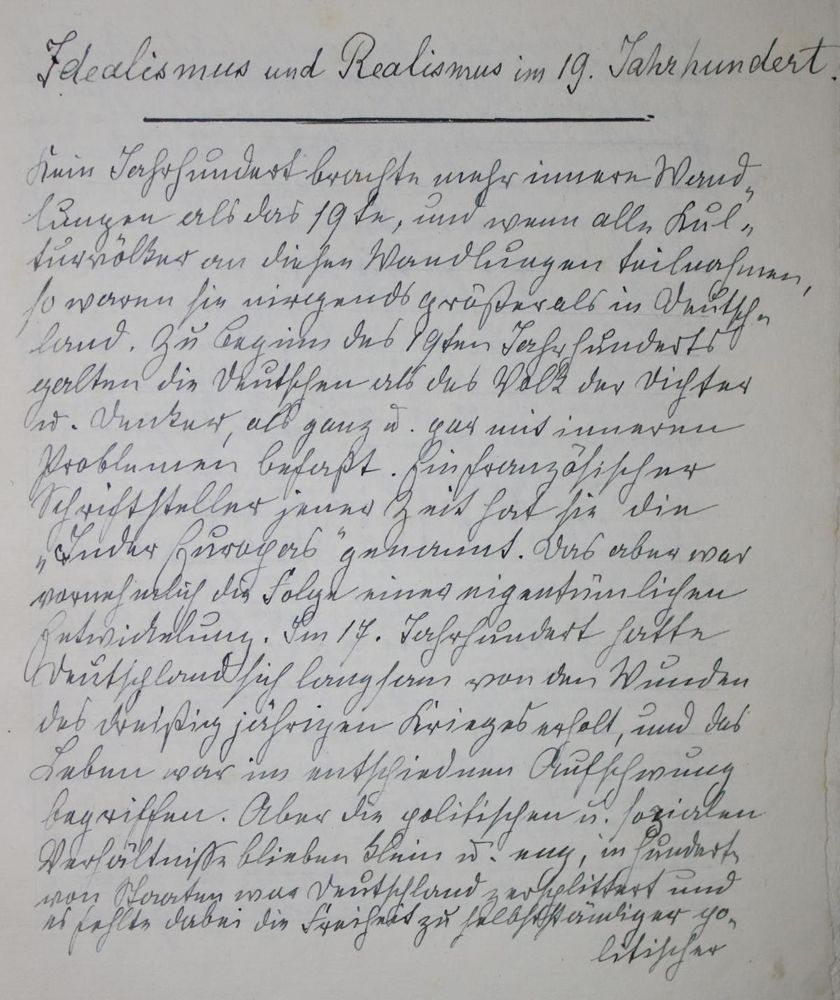 Idealismus und Realismus im 19. Jahrhundert.
Kein Jahrhundert brachte mehr innere Wand„
lungen als das 19te, und wenn alle Kul„
turvölker an diesen Wandlungen teilnahmen,
so waren sie nirgends größer als in Deutsch„
land. Zu Beginn des 19ten Jahrhunderts
galten die Deutschen als das Volk der Dichter
u. Denker, als ganz u. gar mit inneren
Problemen befaßt. Ein französischer
Schriftsteller jener Zeit hat sie die
„Inder Europas" genannt. Das aber war
vornehmlich die Folge einer eigentümlichen
Entwickelung. Im 17. Jahrhundert hatte
Deutschland sich langsam von den Wunden
des dreißigjährigen Krieges erholt, und das
Leben war im entschiednen Aufschwung
begriffen. Aber die politischen u. sozialen
Verhältnisse blieben klein u. eng, in hunderte
von Staaten war Deutschland zersplittert und
es fehlte dabei die Freiheit zu selbstständiger po„
litischer